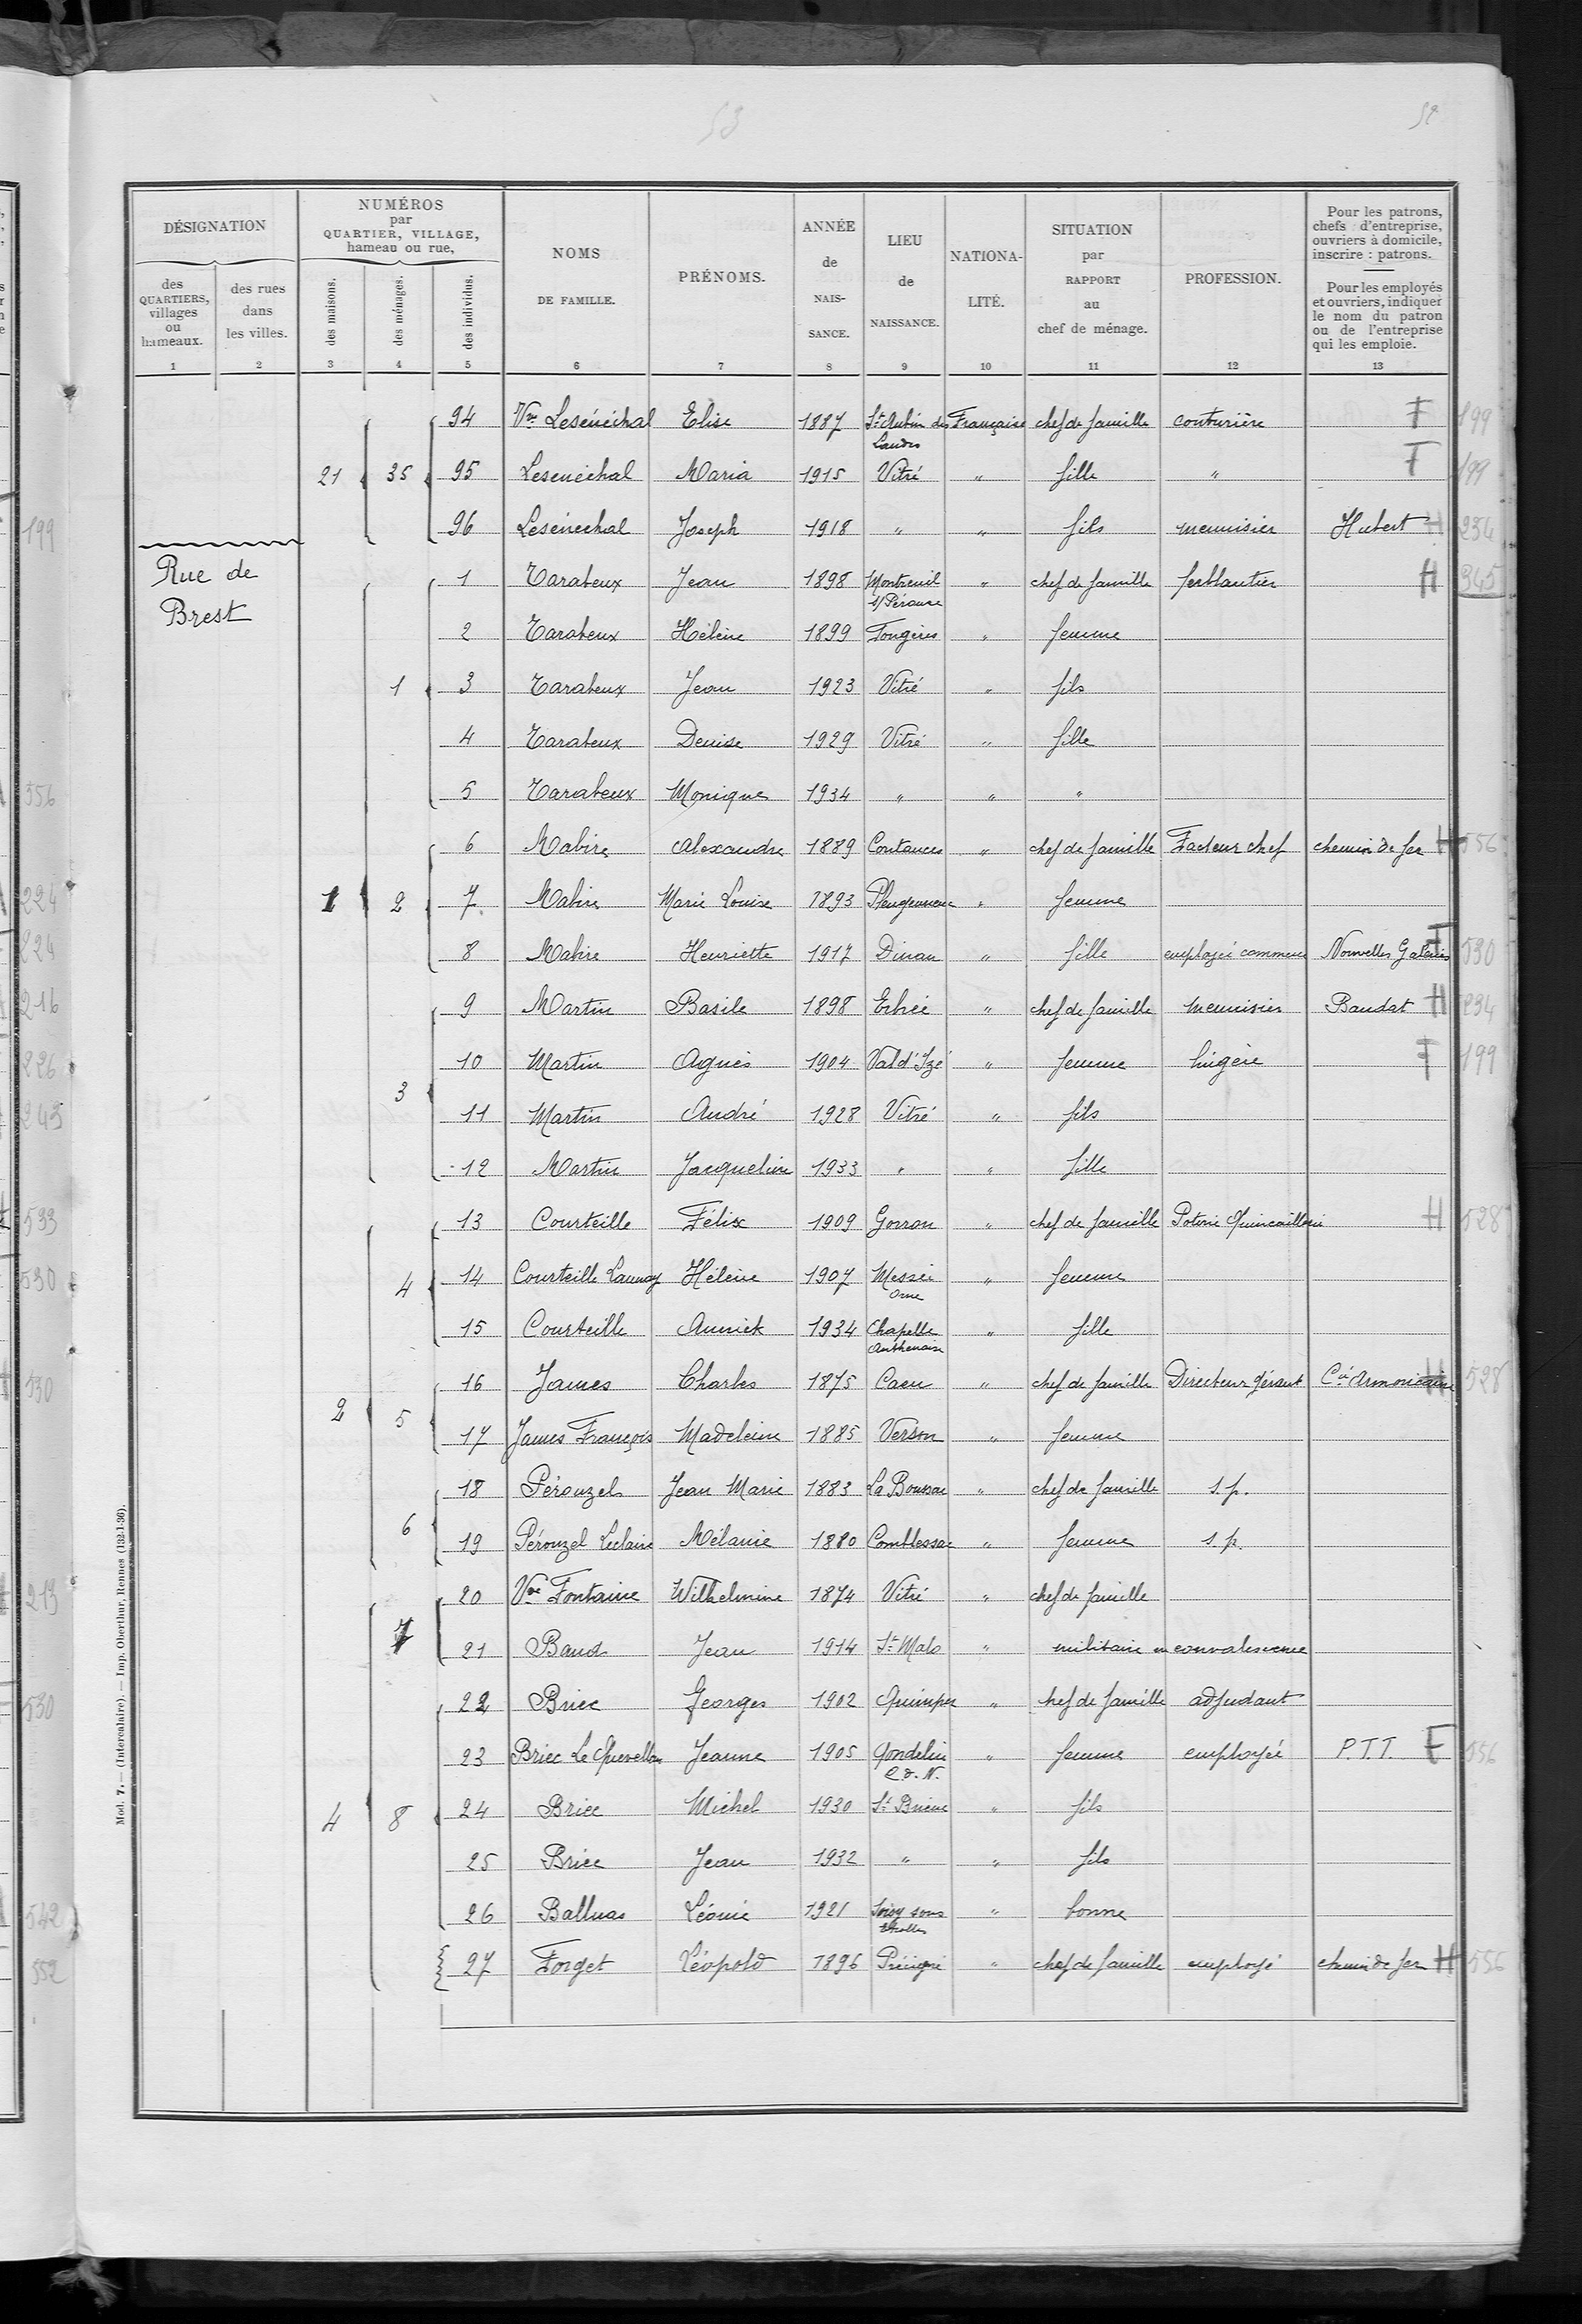 53
52
DÉSIGNATION
NUMÉROS
par
QUARTIER, VILLAGE,
hameau ou rue,
NOMS
DE FAMILLE.
PRÉNOMS.
ANNÉE
de
NAIS-
SANCE.
LIEU
de
NAISSANCE.
NATIONA-
LITÉ.
SITUATION
par
RAPPORT
au
chef de ménage.
PROFESSION.
Pour les patrons,
chefs d'entreprise,
ouvriers à domicile,
inscrire : patrons.
Pour les employés
et ouvriers, indiquer
le nom du patron
ou de l'entreprise
qui les emploie.
des
QUARTIERS,
villages
ou
hameaux.
des rues
dans
les villes.
des maisons.
des ménages.
des individus.
1 2 3 4 5 6 7 8 9 10 11 12 13
94 Vve Lesénéchal Elise 1887 St Aubin des Landes Française chef de famille couturière F 199
21 35 95 Lesénéchal Maria 1915 Vitré " fille " F 199
96 Lesénéchal Joseph 1918 " " fils menuisier Hubert H 234
Rue de
Brest
1 Tarabeux Jean 1898 Montreuil s/ Pérouse " chef de famille ferblantier H 345
2 Tarabeux Hélène 1899 Fougères " femme
1 3 Tarabeux Jean 1923 Vitré " fils
4 Tarabeux Denise 1929 Vitré " fille
5 Tarabeux Monique 1934 " " "
6 Mabire Alexandre 1889 Coutances " chef de famille Facteur chef chemin de fer H 556
1 2 7 Mabire Marie Louise 1893 Pleugueneuc " femme
8 Mabire Henriette 1917 Dinan " fille employée commerce Nouvelles Galeries F 530
9 Martin Basile 1898 Erbrée " chef de famille menuisier Baudat H 234
10 Martin Agnès 1904 Val d'Izé " femme lingère F 199
3
11 Martin André 1928 Vitré " fils
12 Martin Jacqueline 1933 " " fille
13 Courteille Félix 1909 Gorron " chef de famille Poterie Quincaillerie H 528
4 14 Courteille Launay Hélène 1907 Messei Orne " femme
15 Courteille Annick 1934 Chapelle Anthenaise " fille
16 James Charles 1875 Caen " chef de famille Directeur gérant Cie Armoricaine H 528
2 5
17 James François Madeleine 1885 Verson " femme
18 Pérouzel Jean Marie 1883 La Boussac " chef de famille s.p.
6
19 Pérouzel Leclaire Mélanie 1880 Comblessac " femme s.p.
20 Vve Fontaine Wilhelmine 1874 Vitré " chef de famille
7
21 Baud Jean 1914 St Malo " militaire en convalescence
22 Briec Georges 1902 Quimper " chef de famille adjudant
23 Briec Le Quevellou Jeanne 1905 Gondelin C.d.N. " femme employée P.T.T. F 556
4 8 24 Briec Michel 1930 St Brieuc " fils
25 Briec Jean 1932 " " fils
26 Balluas Léonie 1921 Soisy sous Etiolles " bonne
27 Forget Léopold 1896 Précigné " chef de famille employé chemin de fer H 556
Mod. 7. — (Intercalaire). — Imp. Oberthur, Rennes (132-1-36).
199
356
224
224
216
226
243
533
530
530
213
530
542
552